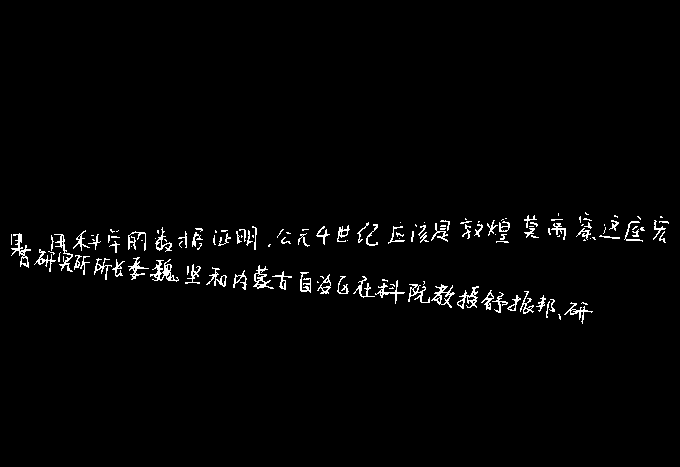 果，用科学的数据证明，公元4世纪应该是敦煌莫高窟这座宏
古研究所所长委魏坚和内蒙古自治区社科院教授舒振邦、研